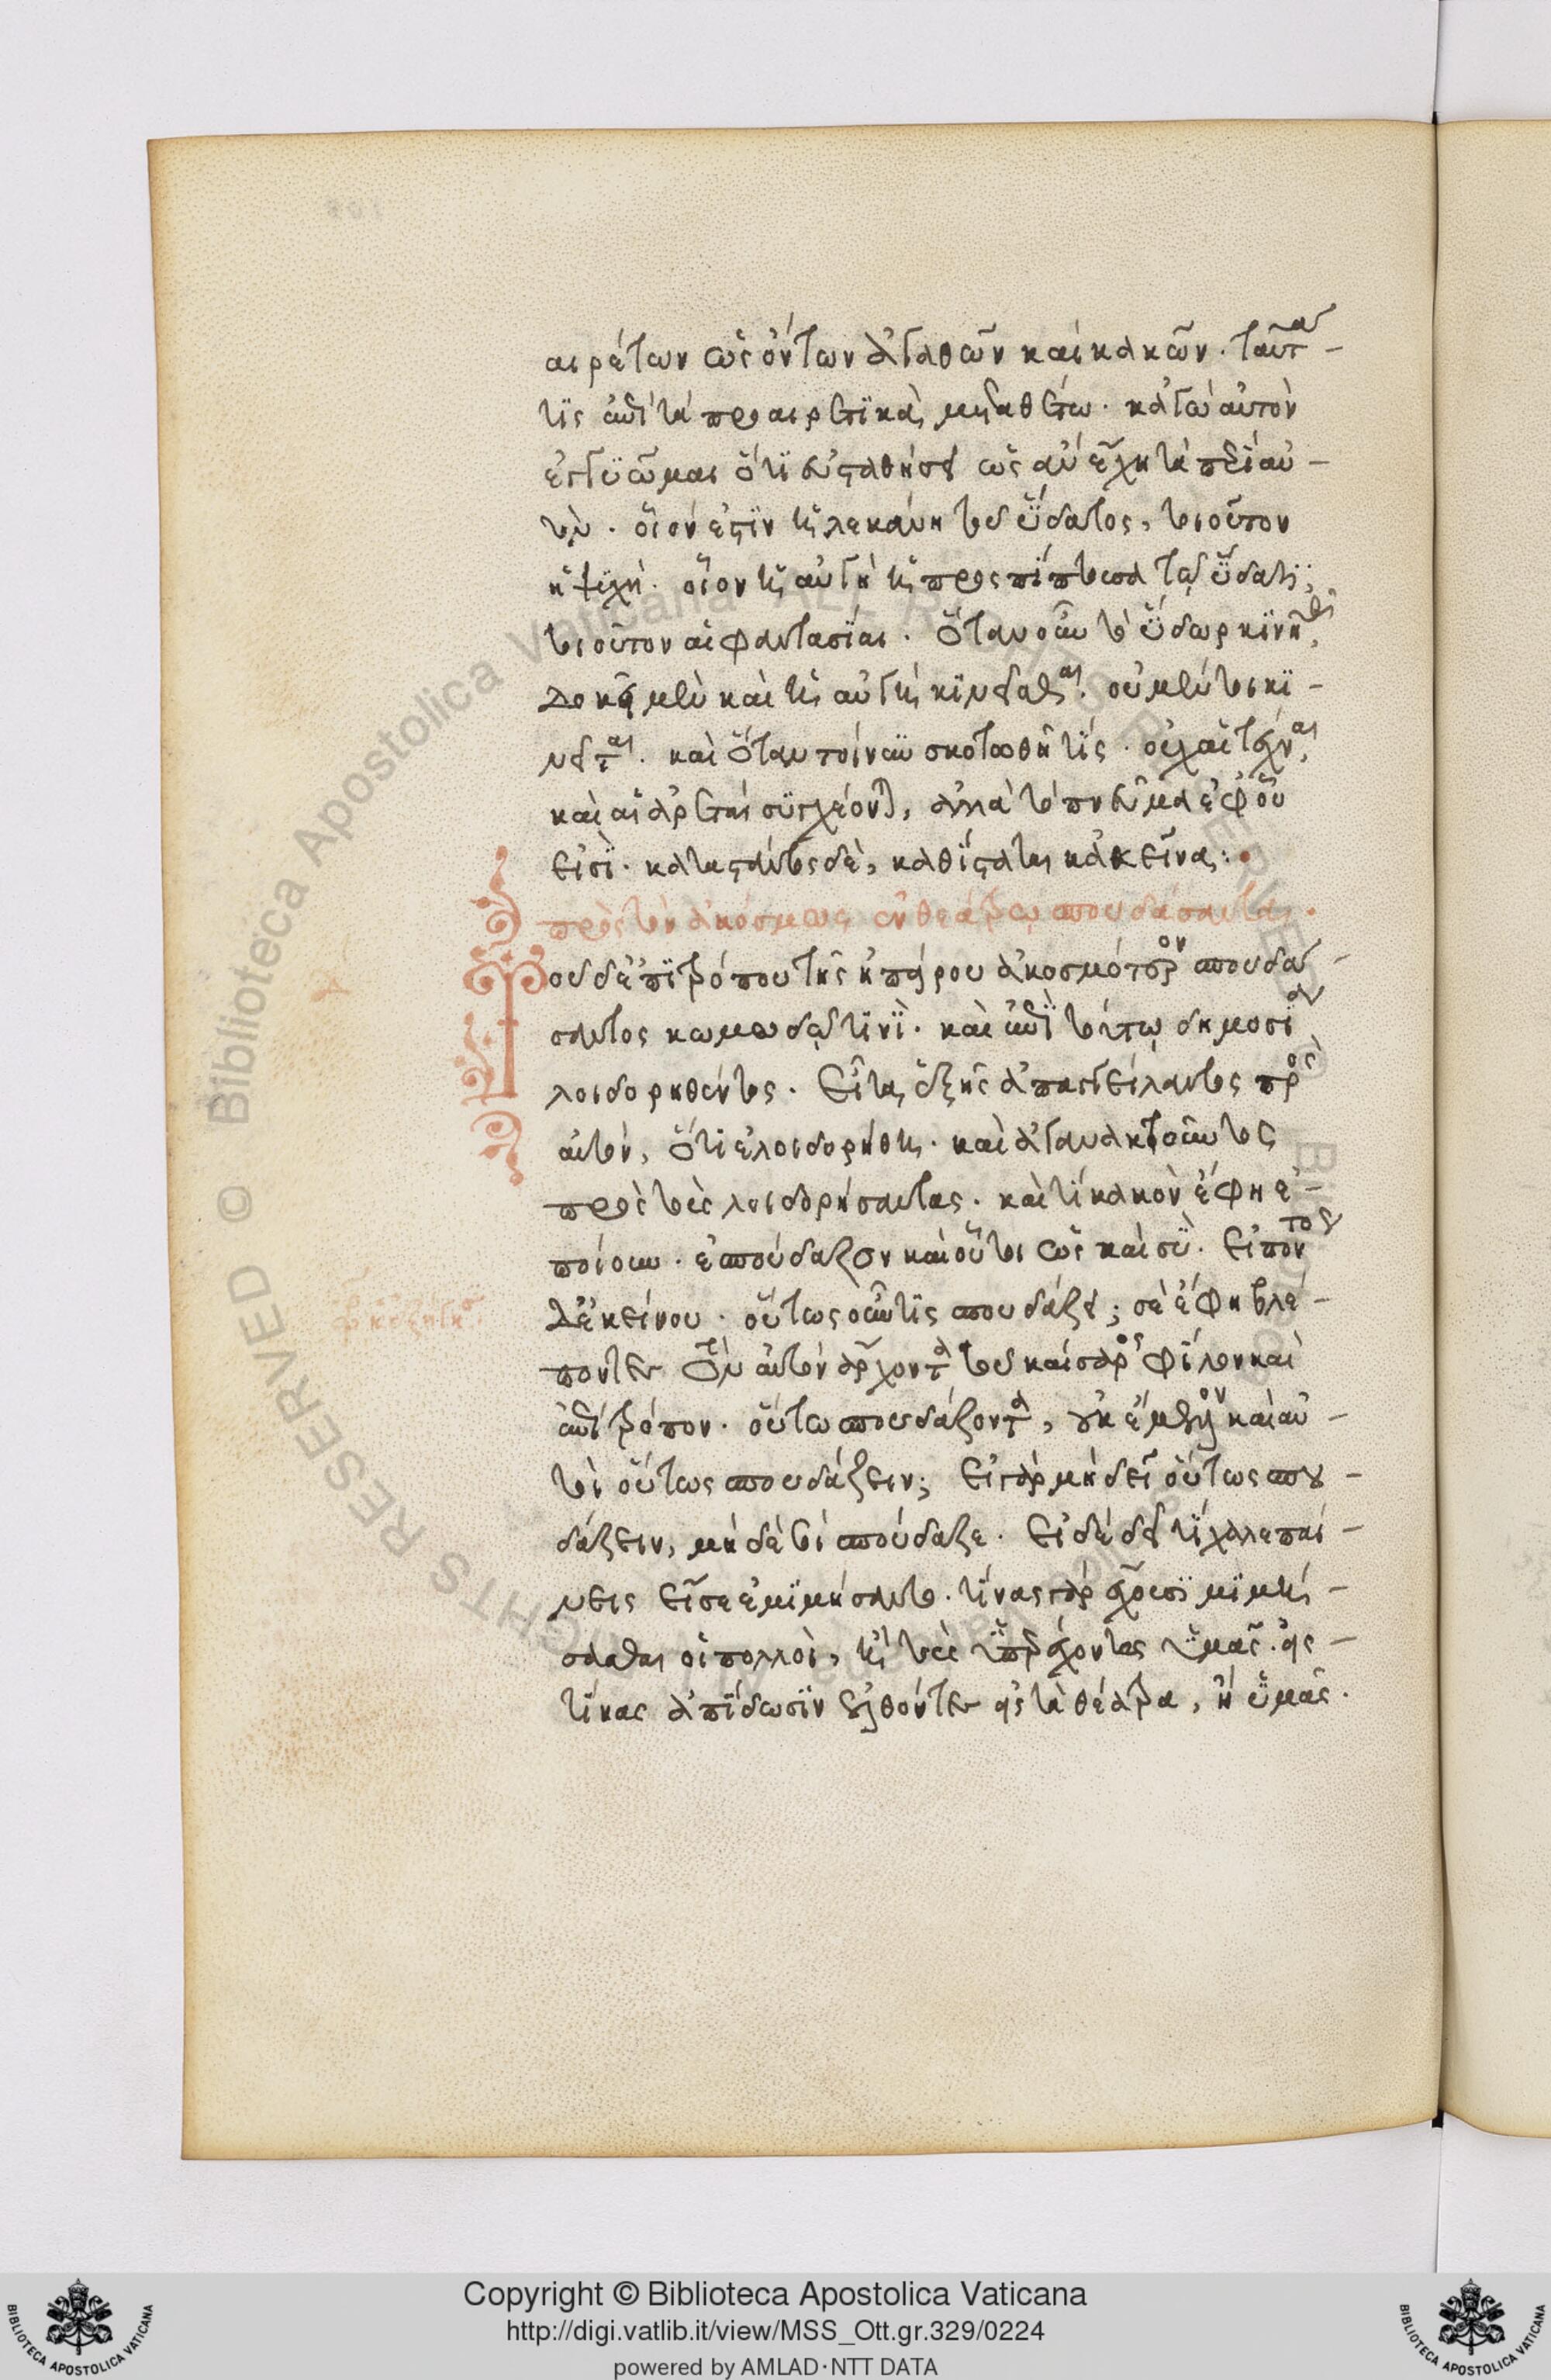 αιρέτων ὡς ὄντων ἀγαθῶν καὶ κακῶν. ταύτας
τίς ἐπὶ τὰ προαιρετικὰ μεταθέτω. κἀγὼ αὐτὸν
ἐγγυῶμαι ὅτι εὐσταθήσει ὡς ἂν ἔχῃ τὰ περὶ αὐ-
τόν. οἷόν ἐστιν ἡ λεκάνη τοῦ ὕδατος, τοιοῦτον
ἡ ψυχή. οἷον ἡ αὐγὴ ἡ προσπίπτουσα τῷ ὕδατι,
τοιοῦτον αἱ φαντασίαι. ὅταν οὖν τὸ ὕδωρ κινηθῇ,
δοκεῖ μὲν καὶ ἡ αὐγὴ κινεῖσθαι. οὐ μέντοι κι-
νεῖται. καὶ ὅταν τοίνυν σκοτωθῇ τίς. οὐχ αἱ τέχναι,
καὶ αἱ ἀρεταὶ συγχέονται, ἀλλὰ τὸ πνεῦμα ἐφ' οὗ
εἰσί. καταστάντος δὲ, καθίσταται κἀκεῖνα:
πρὸς τὸν ἀκόσμως ἐν θεάτρῳ σπουδάσαντα.
Τοῦ δὲ ἐπιτρόπου τῆς ἠπείρου ἀκοσμότερον σπουδά-
σαντος κωμῳδῷ τινὶ. καὶ ἐπὶ τούτῳ δημοσίᾳ
λοιδορηθέντος. εἶτα ἑξῆς ἀπαγγείλαντος πρὸς
αὐτὸν, ὅτι ἐλοιδορήθη. καὶ ἀγανακτοῦντος
πρὸς τοὺς λοιδορήσαντας. καὶ τί κακὸν ἔφη ἐ-
ποίουν. ἐσπούδαζον καὶ οὗτοι ὡς καὶ σύ. εἰπόντος
δ' ἐκείνου. οὕτως οὖν τὶς σπουδάζει; σὲ ἔφη βλέ-
ποντες τὸν αὐτῶν ἄρχοντα τοῦ καίσαρος φίλον καὶ
ἐπίτροπον. οὕτω σπουδάζοντα, οὐκ ἔμελλον καὶ αὐ-
τοὶ οὕτως σπουδάζειν; εἰ γὰρ μὴ δεῖ οὕτως σπου-
δάζειν, μὴ δὲ σὺ σπούδαζε. εἰ δὲ δεῖ τί χαλεπαί-
νεις εἴ σε ἐμιμήσαντο. τίνας γὰρ ἔχουσι μιμή-
σασθαι οἱ πολλοὶ, ἢ τοὺς ὑπερέχοντας ὑμᾶς. εἰς
τίνας ἀπίδωσιν ἐλθόντες εἰς τὰ θέατρα, ἢ ὑμᾶς.
Copyright © Biblioteca Apostolica Vaticana
http://digi.vatlib.it/view/MSS_Ott.gr.329/0224
powered by AMLAD·NTT DATA
BIBLIOTECA APOSTOLICA VATICANA
BIBLIOTECA APOSTOLICA VATICANA